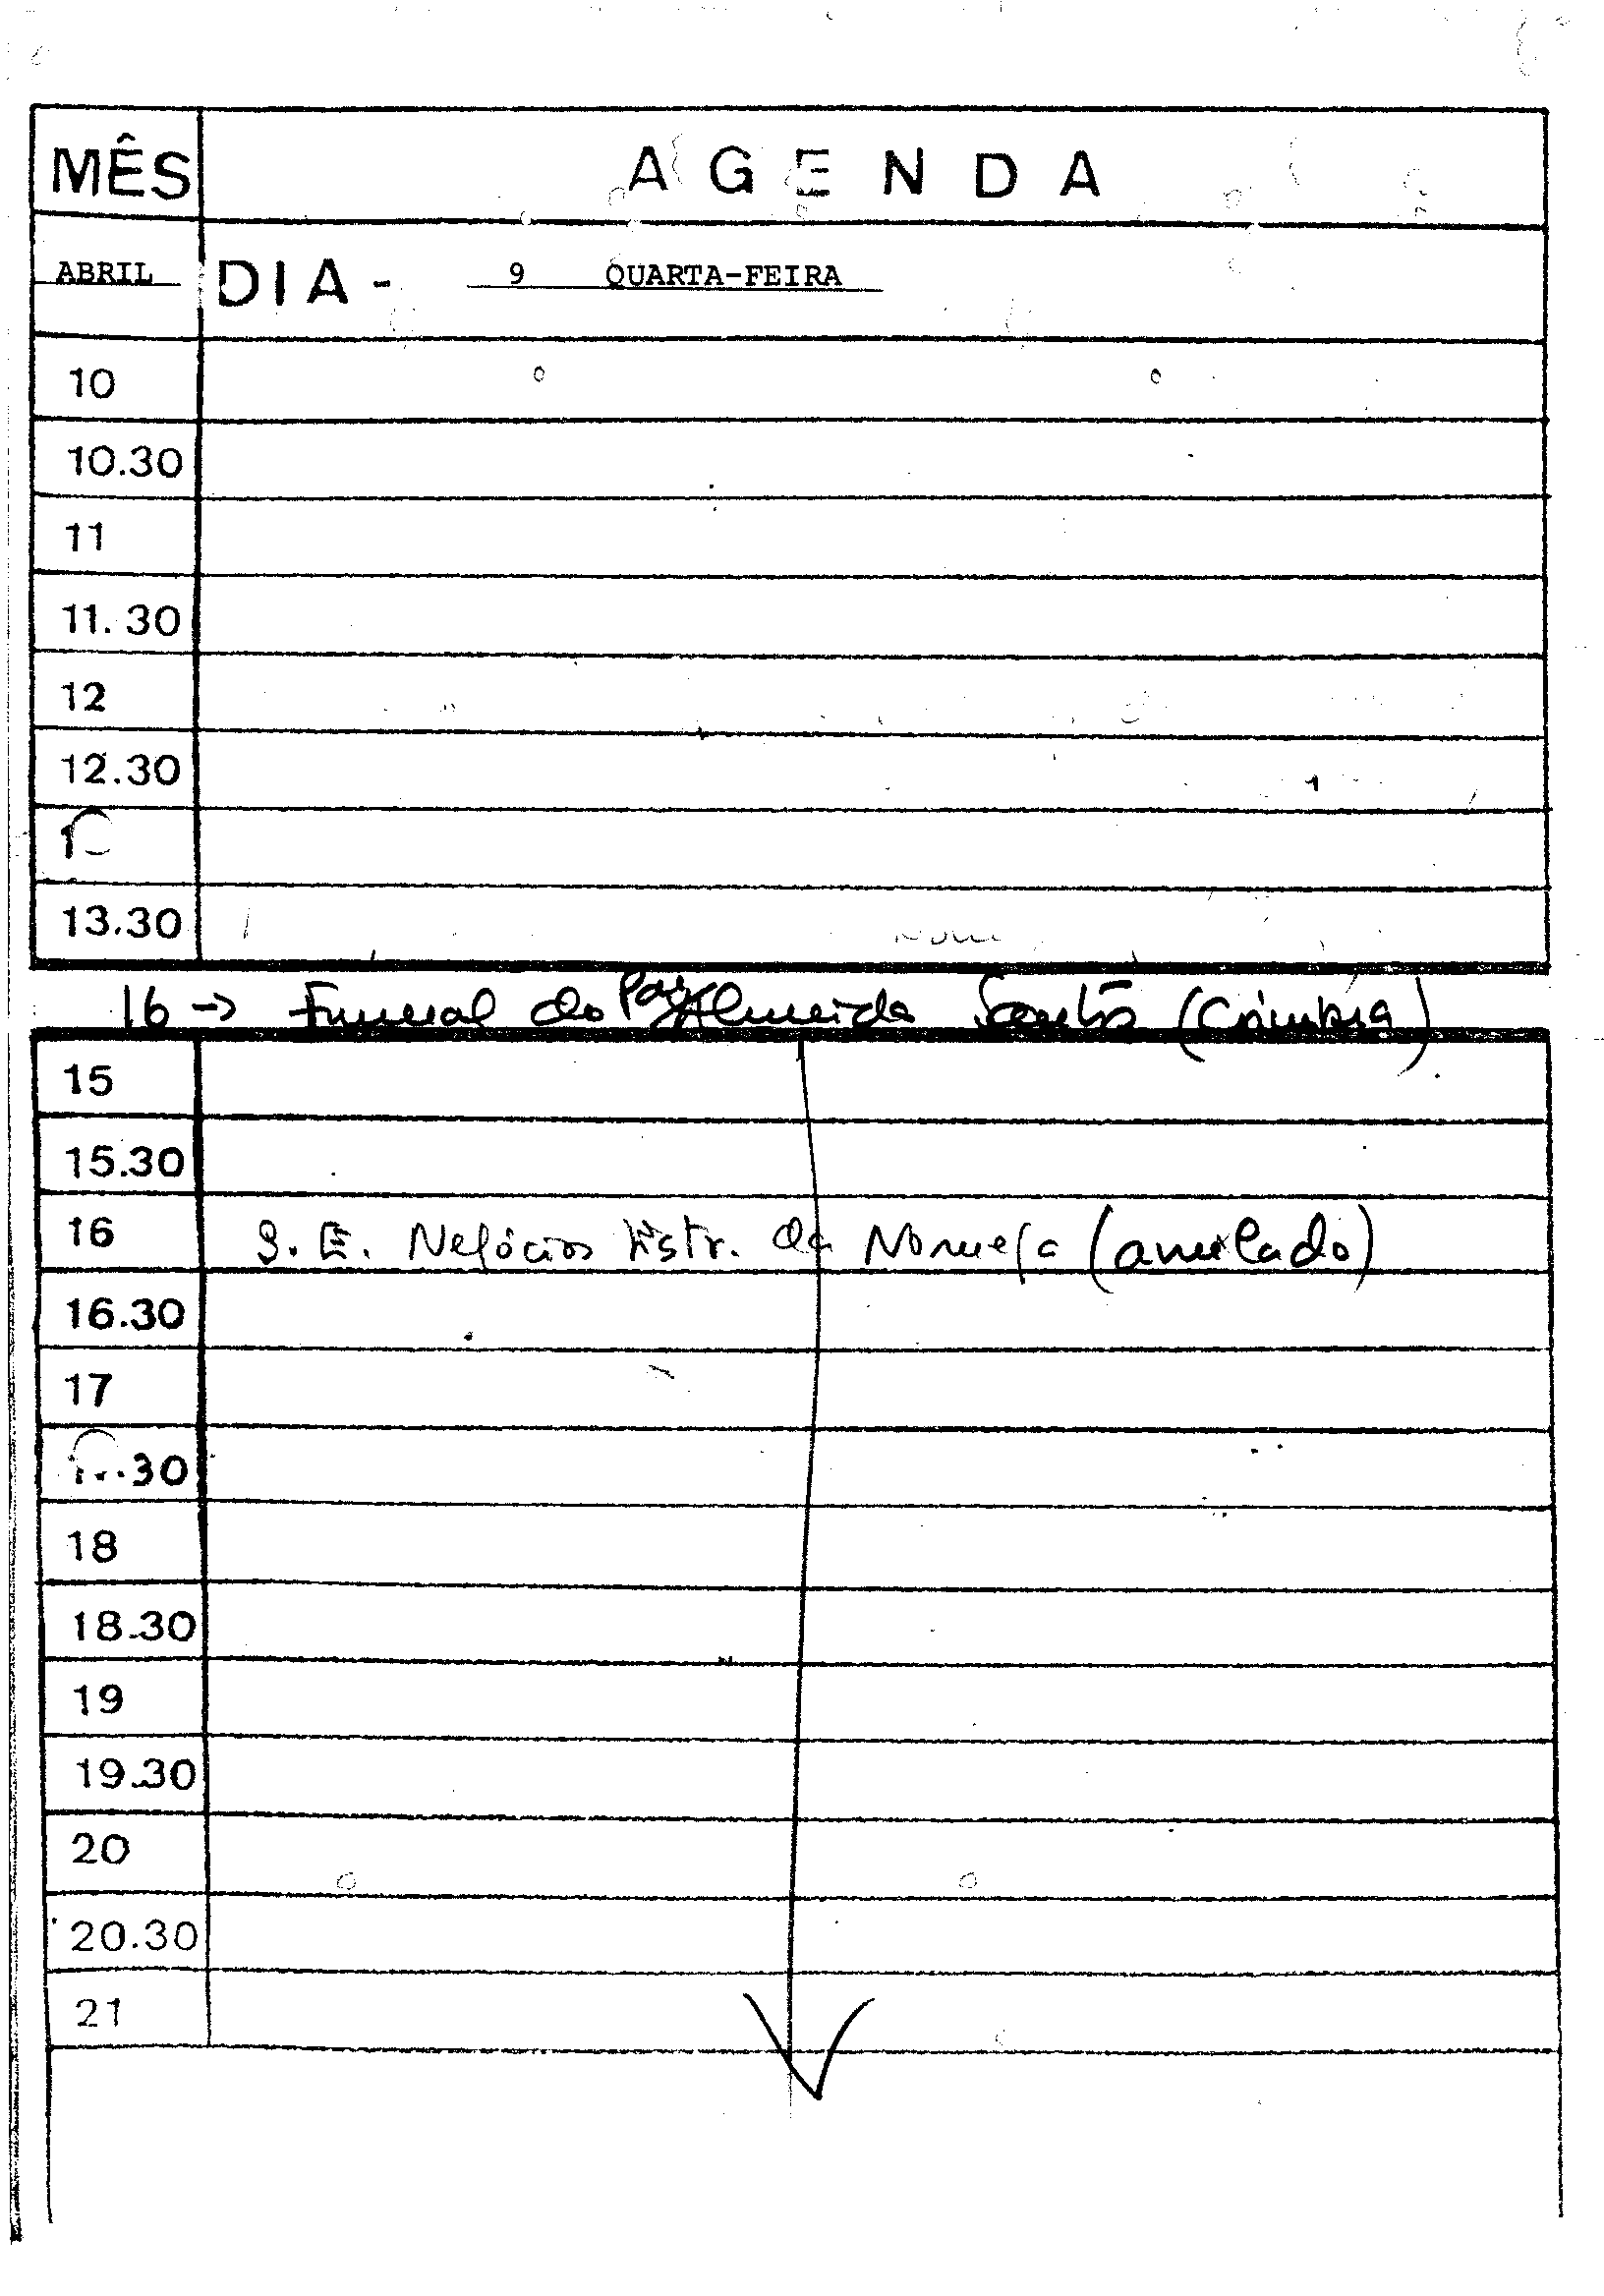 MÊS AGENDA
ABRIL DIA - 9 QUARTA-FEIRA
10
10.30
11
11.30
12
12.30
1
13.30
16 → Funeral do Pai Almeida Santos (Coimbra)
15
15.30
16 S. E. Negócios Estr. da Noruega (anulado)
16.30
17
.30
18
18.30
19
19.30
20
20.30
21